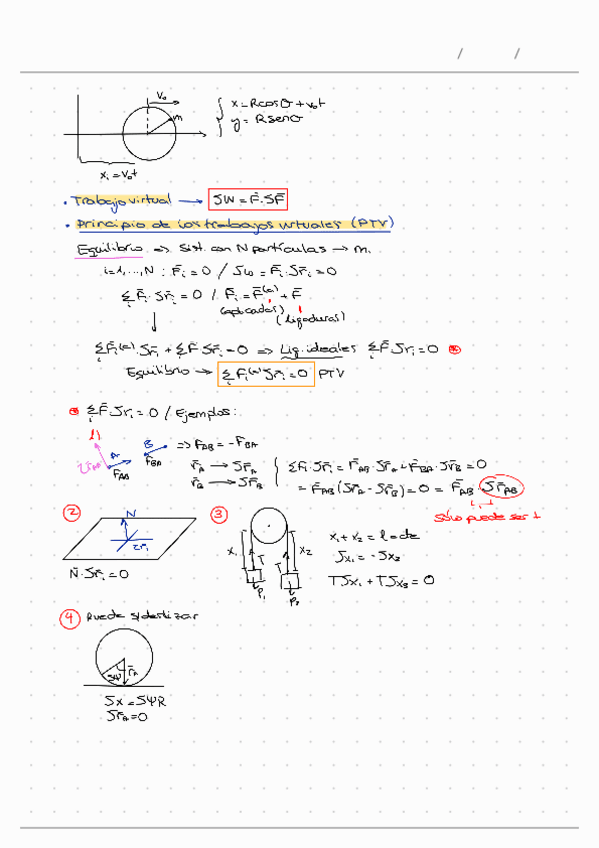 / /
V₀
m
x = Rcosθ + v₀t
y = Rsenθ
xᵢ = v₀t
• Trabajo virtual → δW = F̄·δr̄
• Principio de los trabajos virtuales (PTV)
Equilibrio => Sist. con N partículas → mᵢ
i=1,...,N : F̄ᵢ = 0 / δω = F̄ᵢ·δr̄ᵢ = 0
Σᵢ F̄ᵢ·δr̄ᵢ = 0 / F̄ᵢ = F̄⁽ᵃ⁾ + F̄
(aplicadas) (ligaduras)
Σᵢ F̄ᵢ⁽ᵃ⁾·δr̄ᵢ + Σᵢ F̄ δr̄ᵢ = 0 => Lig. ideales Σᵢ F̄ δrᵢ = 0 *
Equilibrio → Σᵢ Fᵢ⁽ᵃ⁾ δr̄ᵢ = 0 PTV
* Σᵢ F̄ δrᵢ = 0 / Ejemplos:
1)
A B => F̄AB = -F̄BA
F̄AB F̄BA
r̄A → δr̄A
r̄B → δr̄B
ΣFᵢ·δr̄ᵢ = F̄AB·δr̄A + F̄BA·δr̄B = 0
= F̄AB(δr̄A - δr̄B) = 0 = F̄AB·δr̄AB
Sólo puede ser ⊥
2
N
N̄·δr̄ᵢ = 0
3
x₁ x₂
T T
P₁ P₂
x₁ + x₂ = l = cte
δx₁ = -δx₂
Tδx₁ + Tδx₂ = 0
4 Ruede s/deslizar
δψ r̄A
δx = δψR
δr̄A = 0